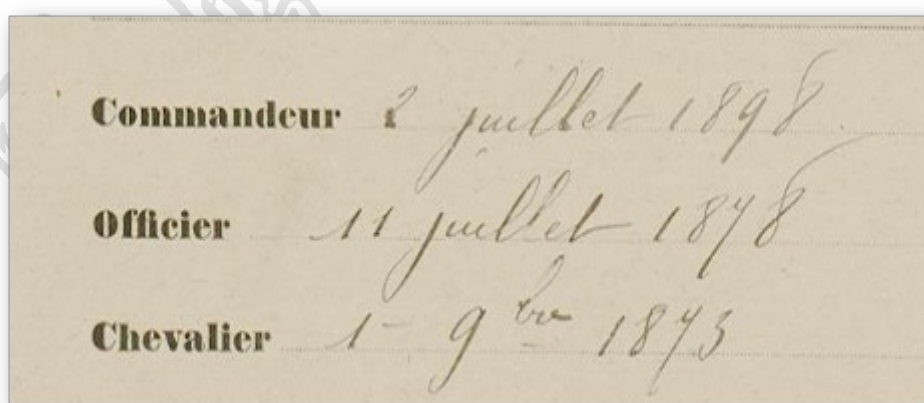 Commandeur 2 juillet 1898
Officier 11 juillet 1878
Chevalier 1 9bre 1873